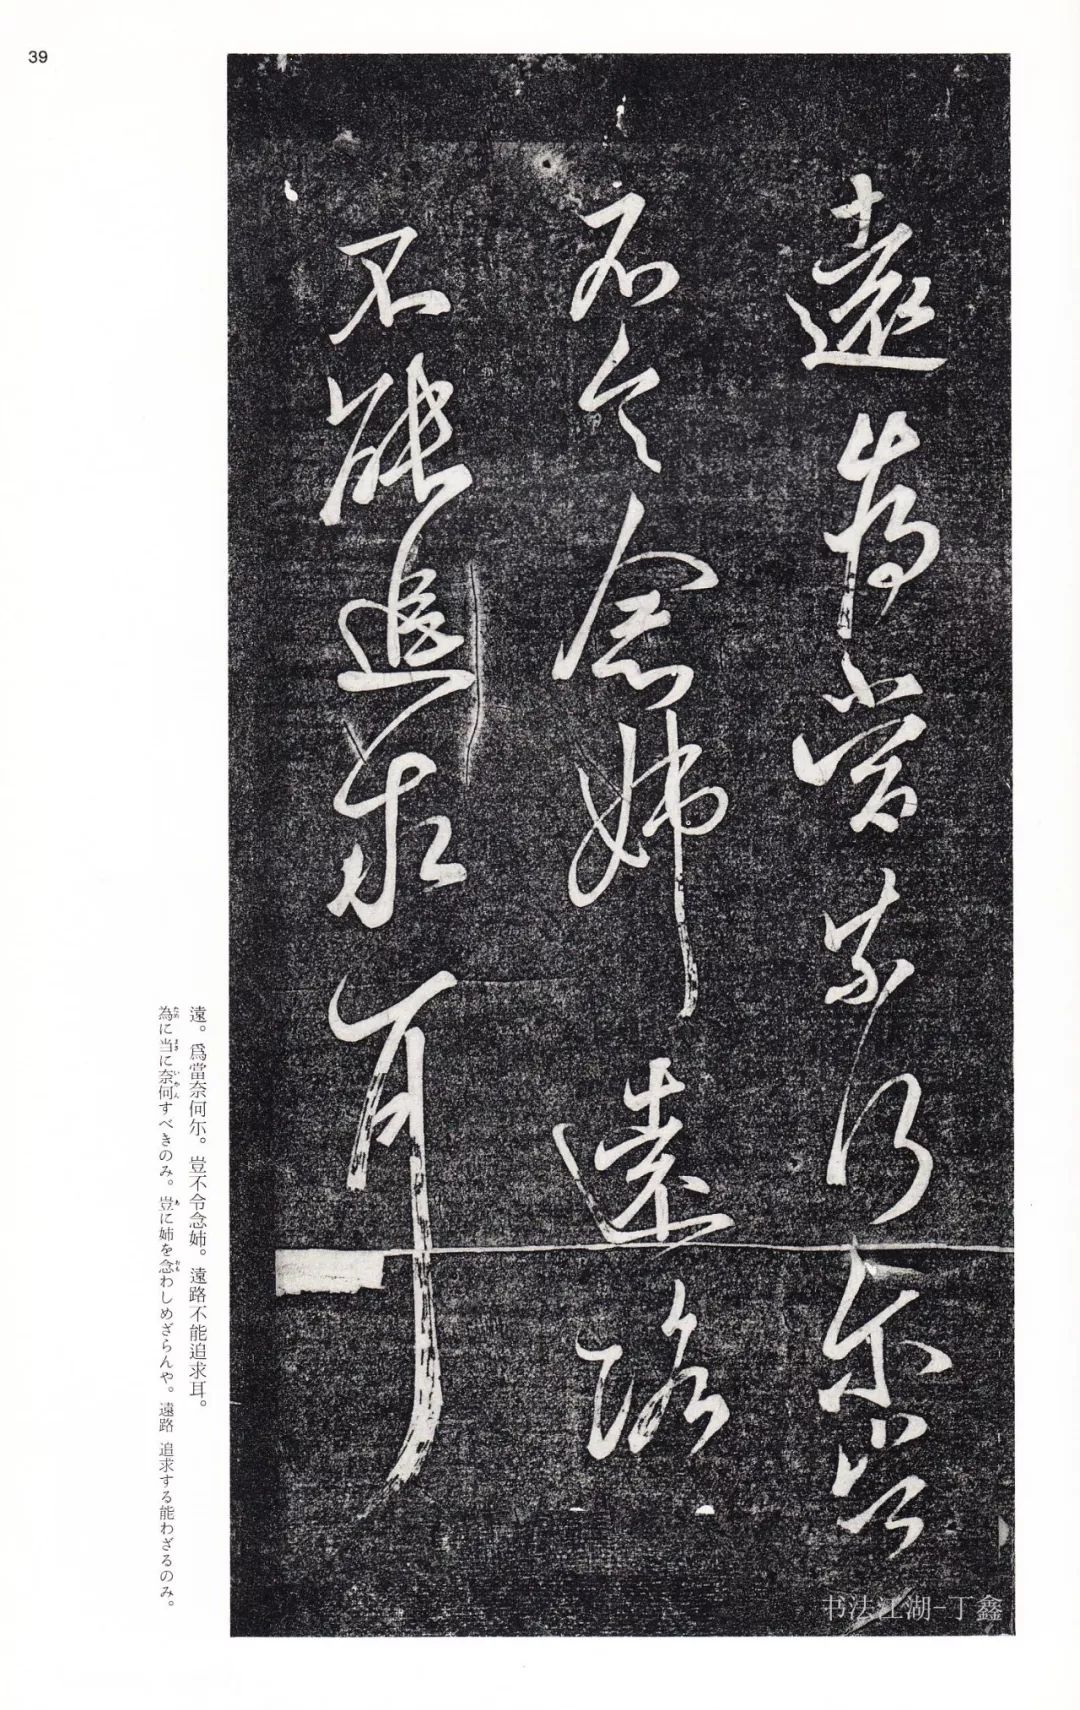 39
遠爲當奈何尓豈
不令念姉遠路
不能追求耳
遠。爲當奈何尓。豈不令念姉。遠路不能追求耳。
為に当に奈何すべきのみ。豈に姉を念わしめざらんや。遠路 追求する能わざるのみ。
书法江湖-丁鑫